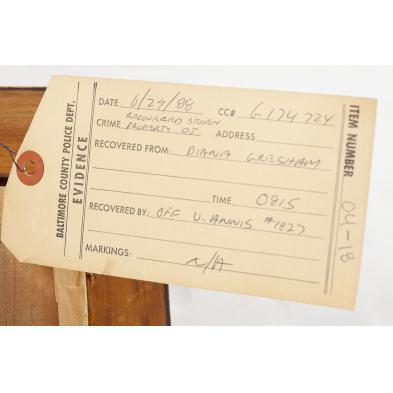 BALTIMORE COUNTY POLICE DEPT.
EVIDENCE
DATE 6/29/88 CC# G174724
CRIME RECOVERED STOLEN
PROPERTY OI ADDRESS
RECOVERED FROM: DIANA GRESHAM
TIME 0815
RECOVERED BY: OFF U. ANNIS #1827
MARKINGS: N/A
ITEM NUMBER 04-18